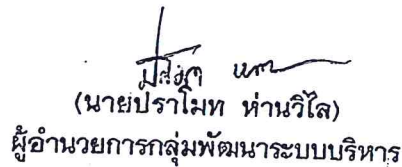 (นายปราโมท ห่านวิไล)
ผู้อำนวยการกลุ่มพัฒนาระบบบริหาร